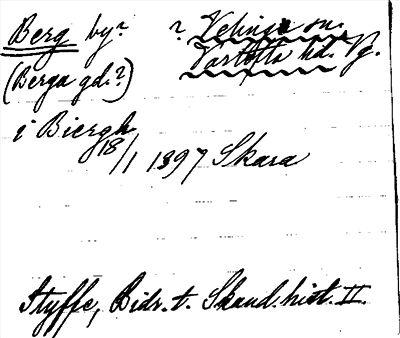 Berg by? ? Velinge sn.
(Berga gd.?) Vartofta hd. Vg.
i Biergh
18/1 1397 Skara
Styffe, Bidr. t. Skand. hist. II.